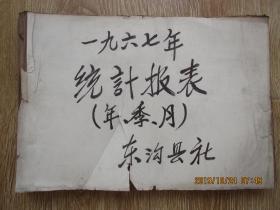 一九六七年
统計报表
(年、季、月)
东沟县社
2019/10/21 07:49